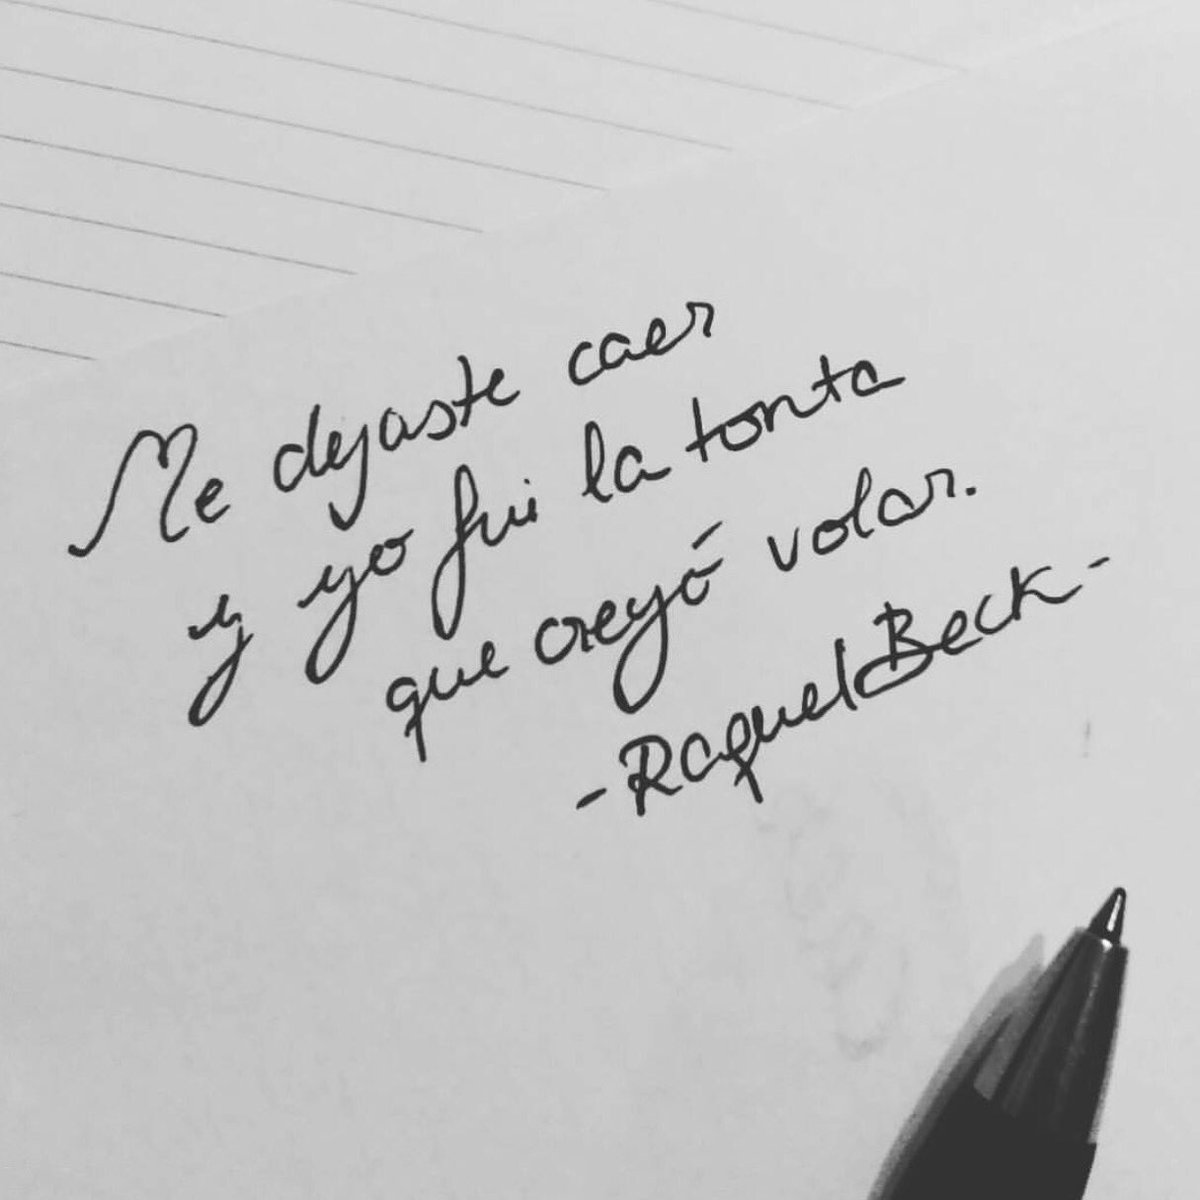 Me dejaste caer
y yo fui la tonta
que creyó volar.
- Raquel Beck -